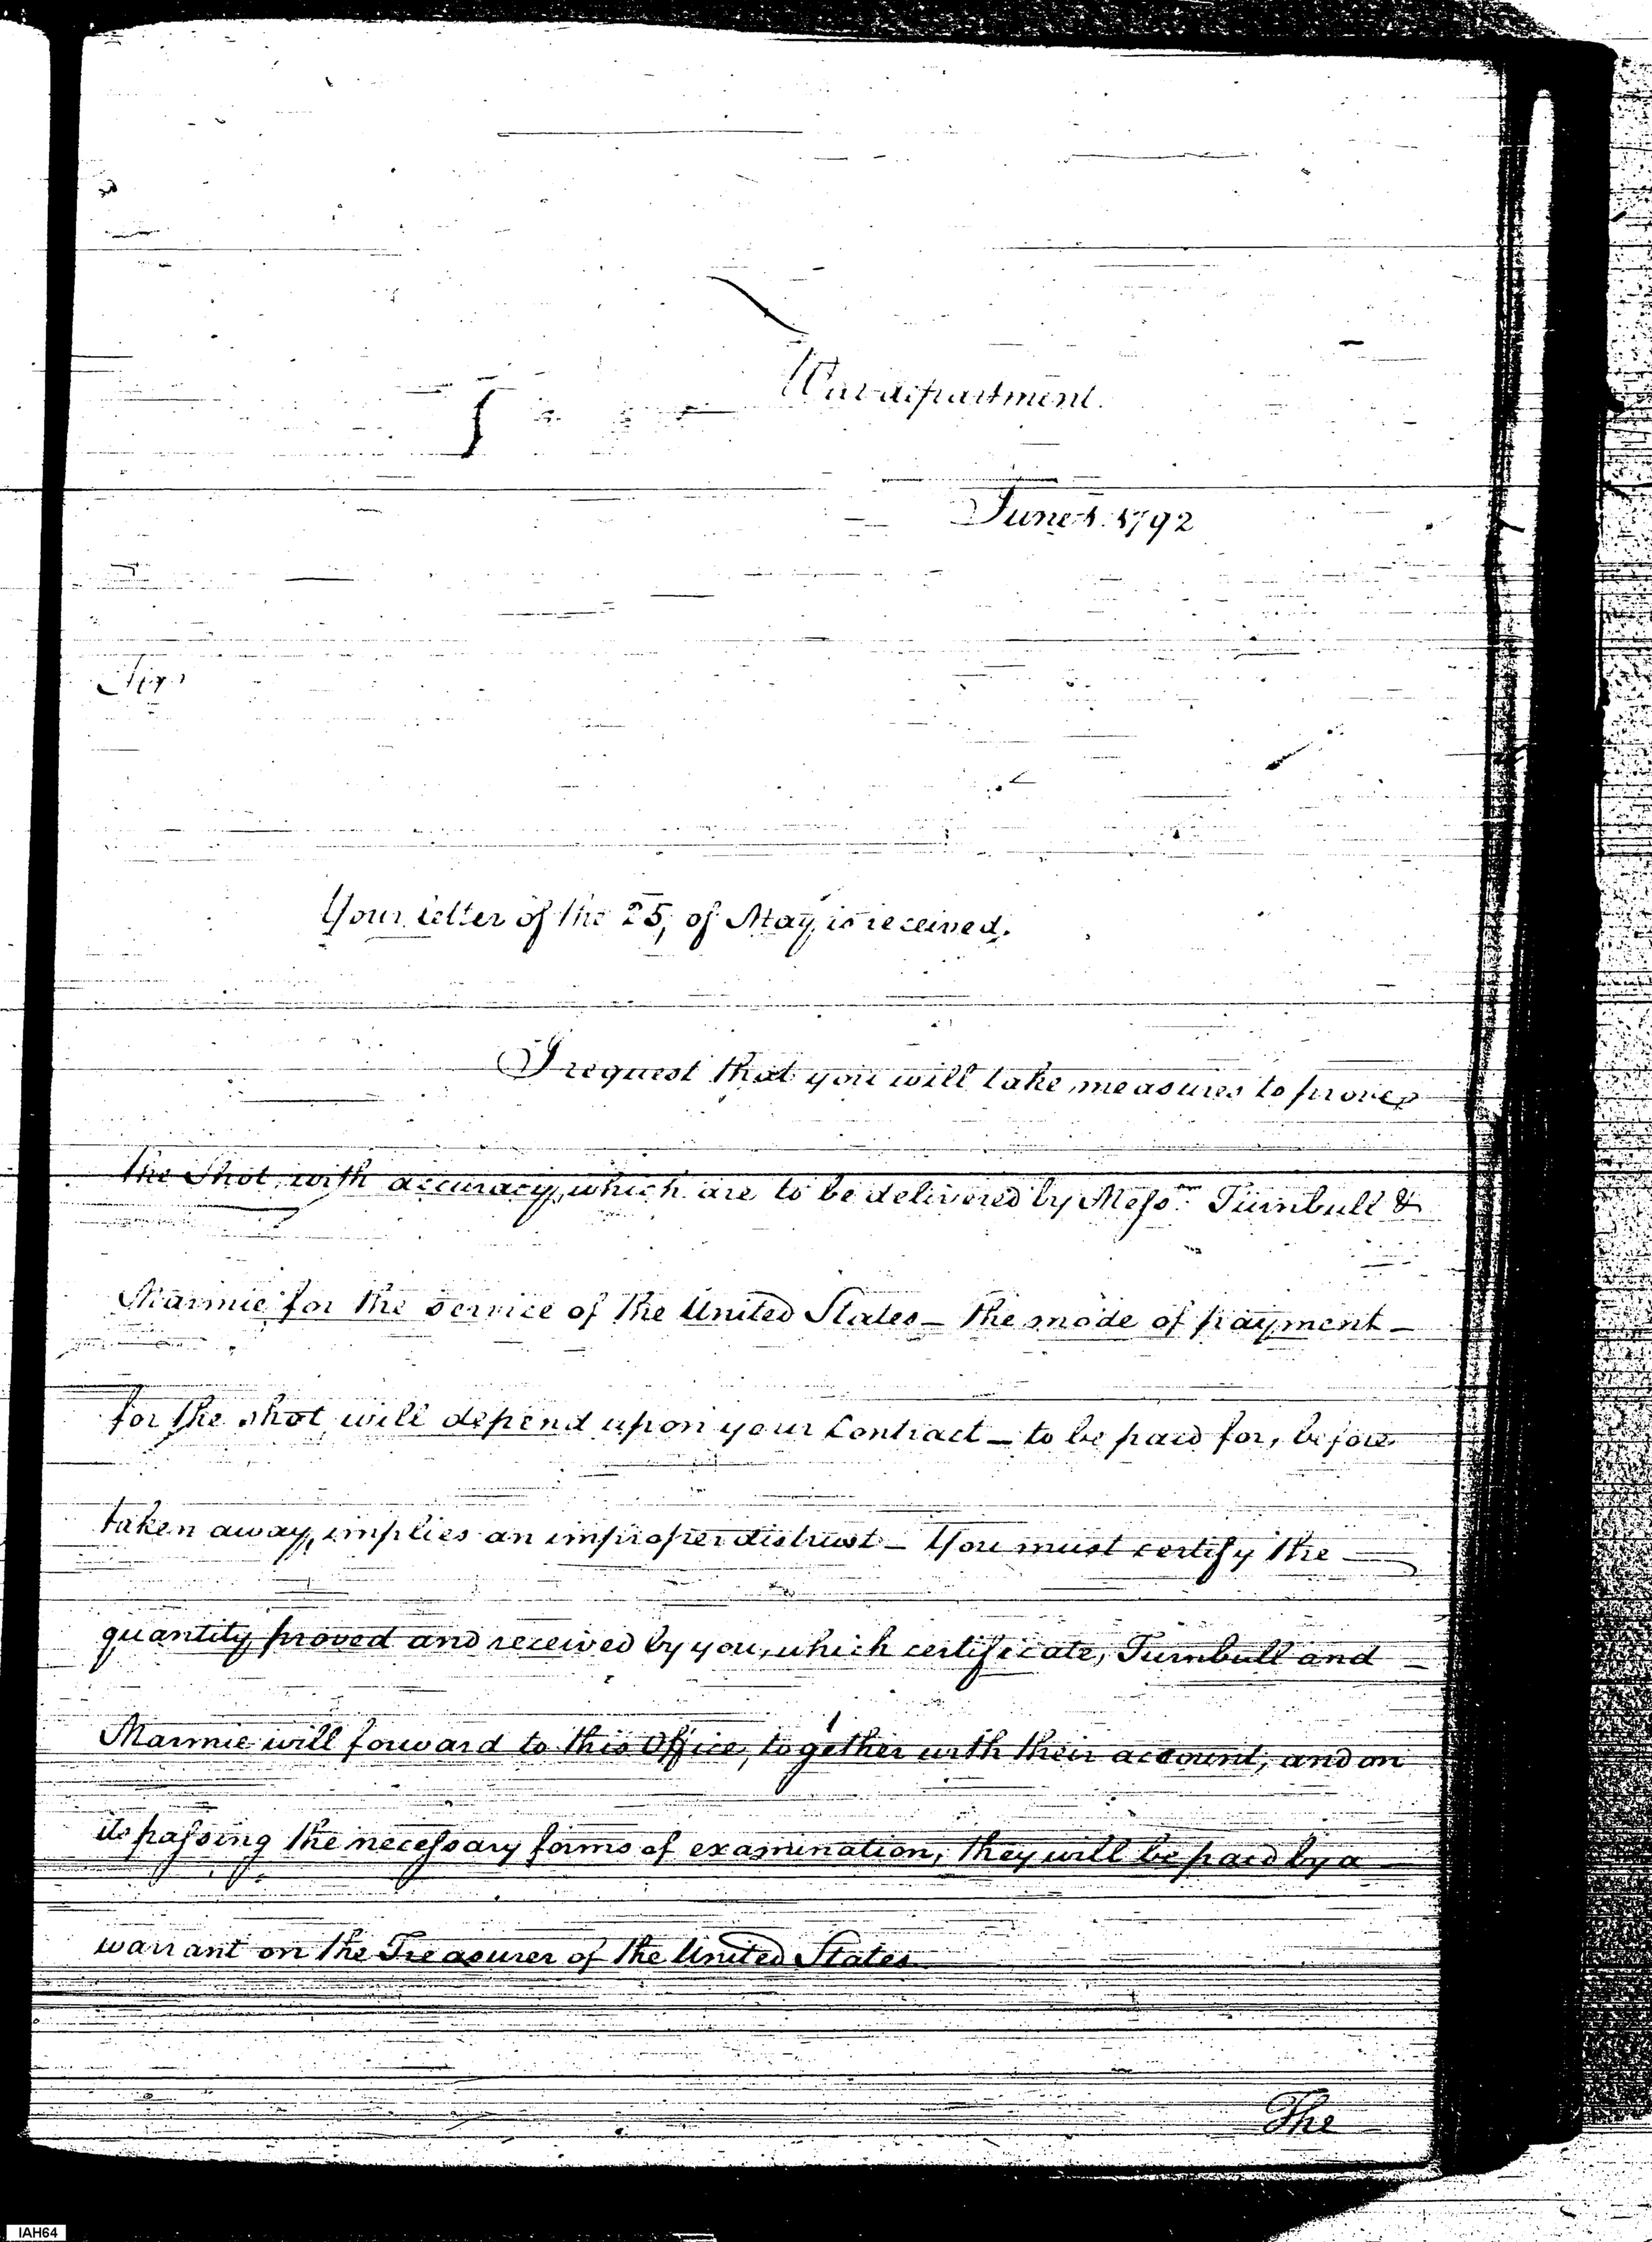 War department.
June 1. 1792
Sir
Your letter of the 25, of May, is received.
I request that you will take measures to prove
the Shot, with accuracy, which are to be delivered by Messrs Turnbull &
Marmie for the service of the United States — the mode of payment —
for the shot, will depend upon your Contract — to be paid for, before
taken away, implies an improper distrust — You must certify the —
quantity proved and received by you, which certificate, Turnbull and —
Marmie will forward to this Office, together with their account, and on
its passing the necessary forms of examination, they will be paid by a
warrant on the Treasurer of the United States
The
IAH64